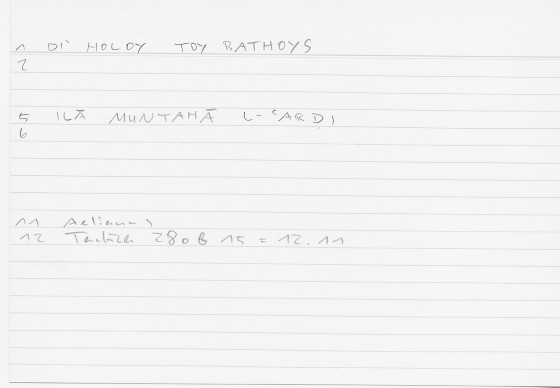 1 DI' HOLOY TOY BATHOYS
2
5 ILĀ MUNTAHĀ L-ʿARḌI
6
11 Aelianus
12 Tactica 280b 15 = 12.11